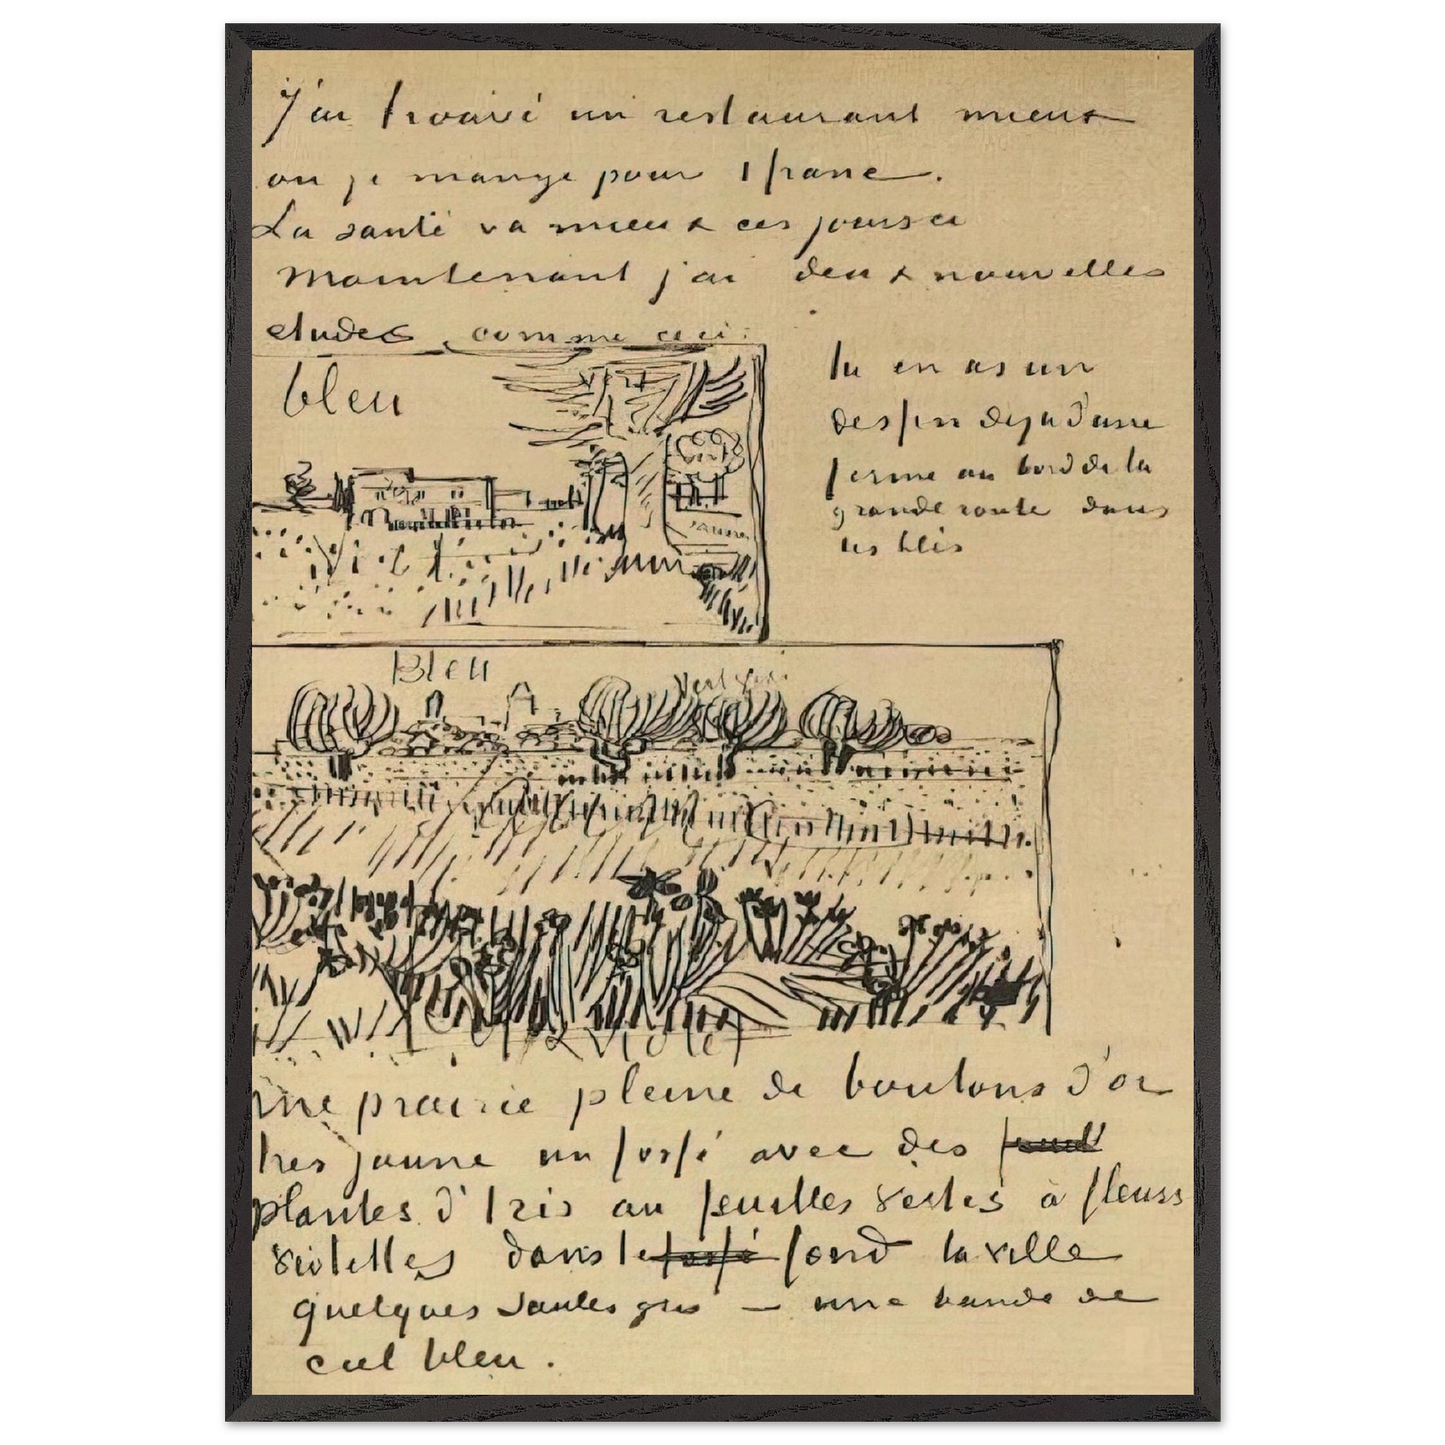 J'ai trouvé un restaurant mieux
ou je mange pour 1 franc.
La santé va mieux ces jours ci
Maintenant j'ai deux nouvelles
etudes comme ceci:
bleu
vert
vert
jaune
violet
tu en as un
dessin deja d'une
ferme au bord de la
grande route dans
les blés
Bleu
Vert gris
violet
une prairie pleine de boutons d'or
tres jaune un fossé avec des
plantes d'Iris au feuilles vertes à fleurs
violettes dans le fossé fond la ville
quelques saules gris – une bande de
ciel bleu.